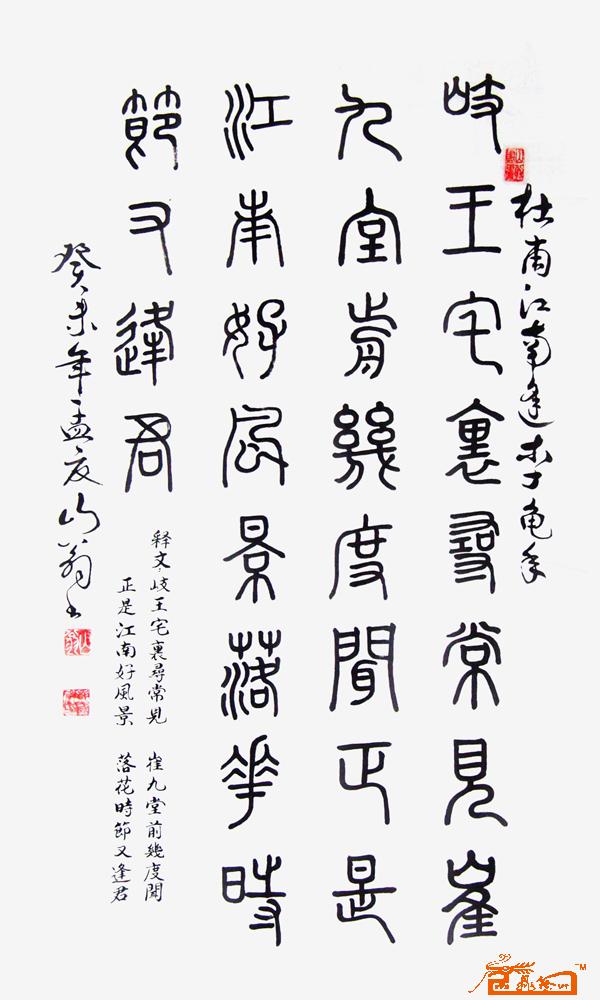 杜甫江南逢李龟年
岐王宅裏尋常見崔
九堂前幾度聞正是
江南好風景落華時
節又逢君
释文：岐王宅裏尋常見 崔九堂前幾度聞
正是江南好風景 落花時節又逢君
癸未年孟夏山翁书